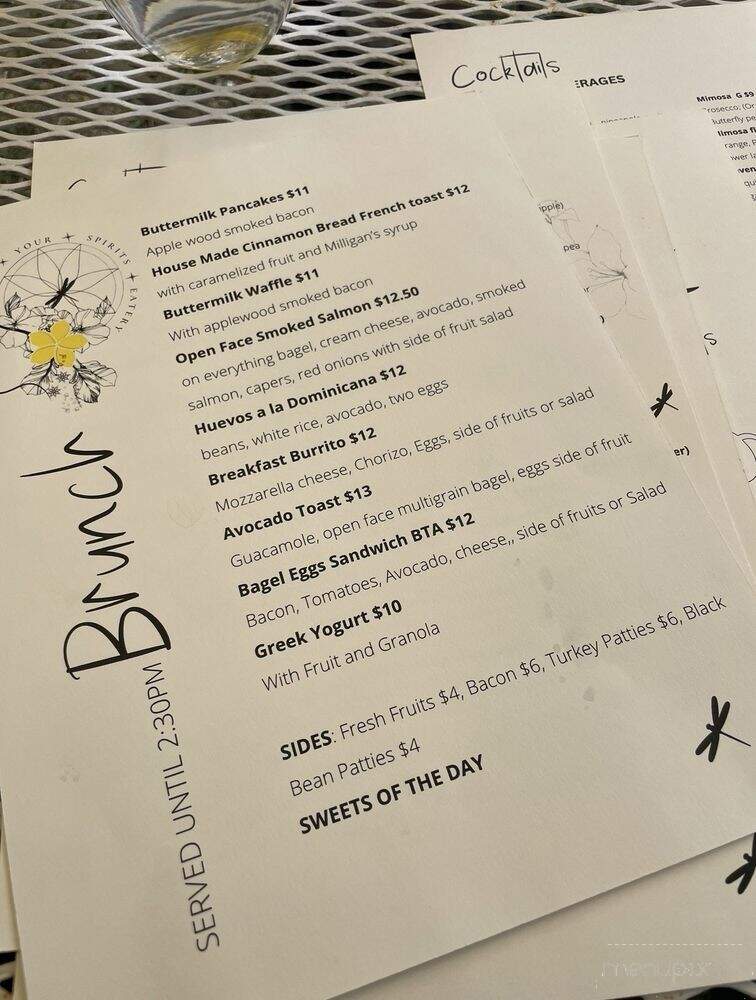 Cocktails
ERAGES
Mimosa G $9
Buttermilk Pancakes $11
Apple wood smoked bacon
House Made Cinnamon Bread French toast $12
with caramelized fruit and Milligan's syrup
Buttermilk Waffle $11
With applewood smoked bacon
Open Face Smoked Salmon $12.50
on everything bagel, cream cheese, avocado, smoked
salmon, capers, red onions with side of fruit salad
Huevos a la Dominicana $12
beans, white rice, avocado, two eggs
Breakfast Burrito $12
Mozzarella cheese, Chorizo, Eggs, side of fruits or salad
Avocado Toast $13
Guacamole, open face multigrain bagel, eggs side of fruit
Bagel Eggs Sandwich BTA $12
Bacon, Tomatoes, Avocado, cheese,, side of fruits or Salad
Greek Yogurt $10
With Fruit and Granola
SIDES: Fresh Fruits $4, Bacon $6, Turkey Patties $6, Black
Bean Patties $4
SWEETS OF THE DAY
YOUR SPIRITS EATERY
Brunch
SERVED UNTIL 2:30PM
pple)
pea
er)
menupix